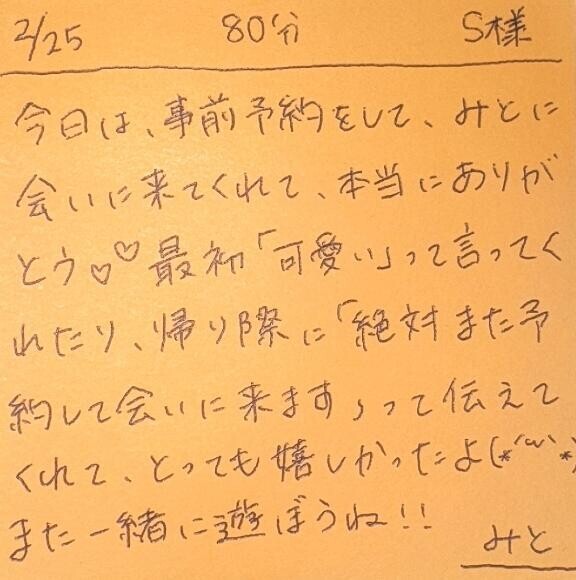 2/25 80分 S様
今日は、事前予約をして、みとに
会いに来てくれて、本当にありが
とう♡♡最初「可愛い」って言ってく
れたり、帰り際に「絶対また予
約して会いに来ます」って伝えて
くれて、とっても嬉しかったよ(*´ω｀*)
また一緒に遊ぼうね!!
みと